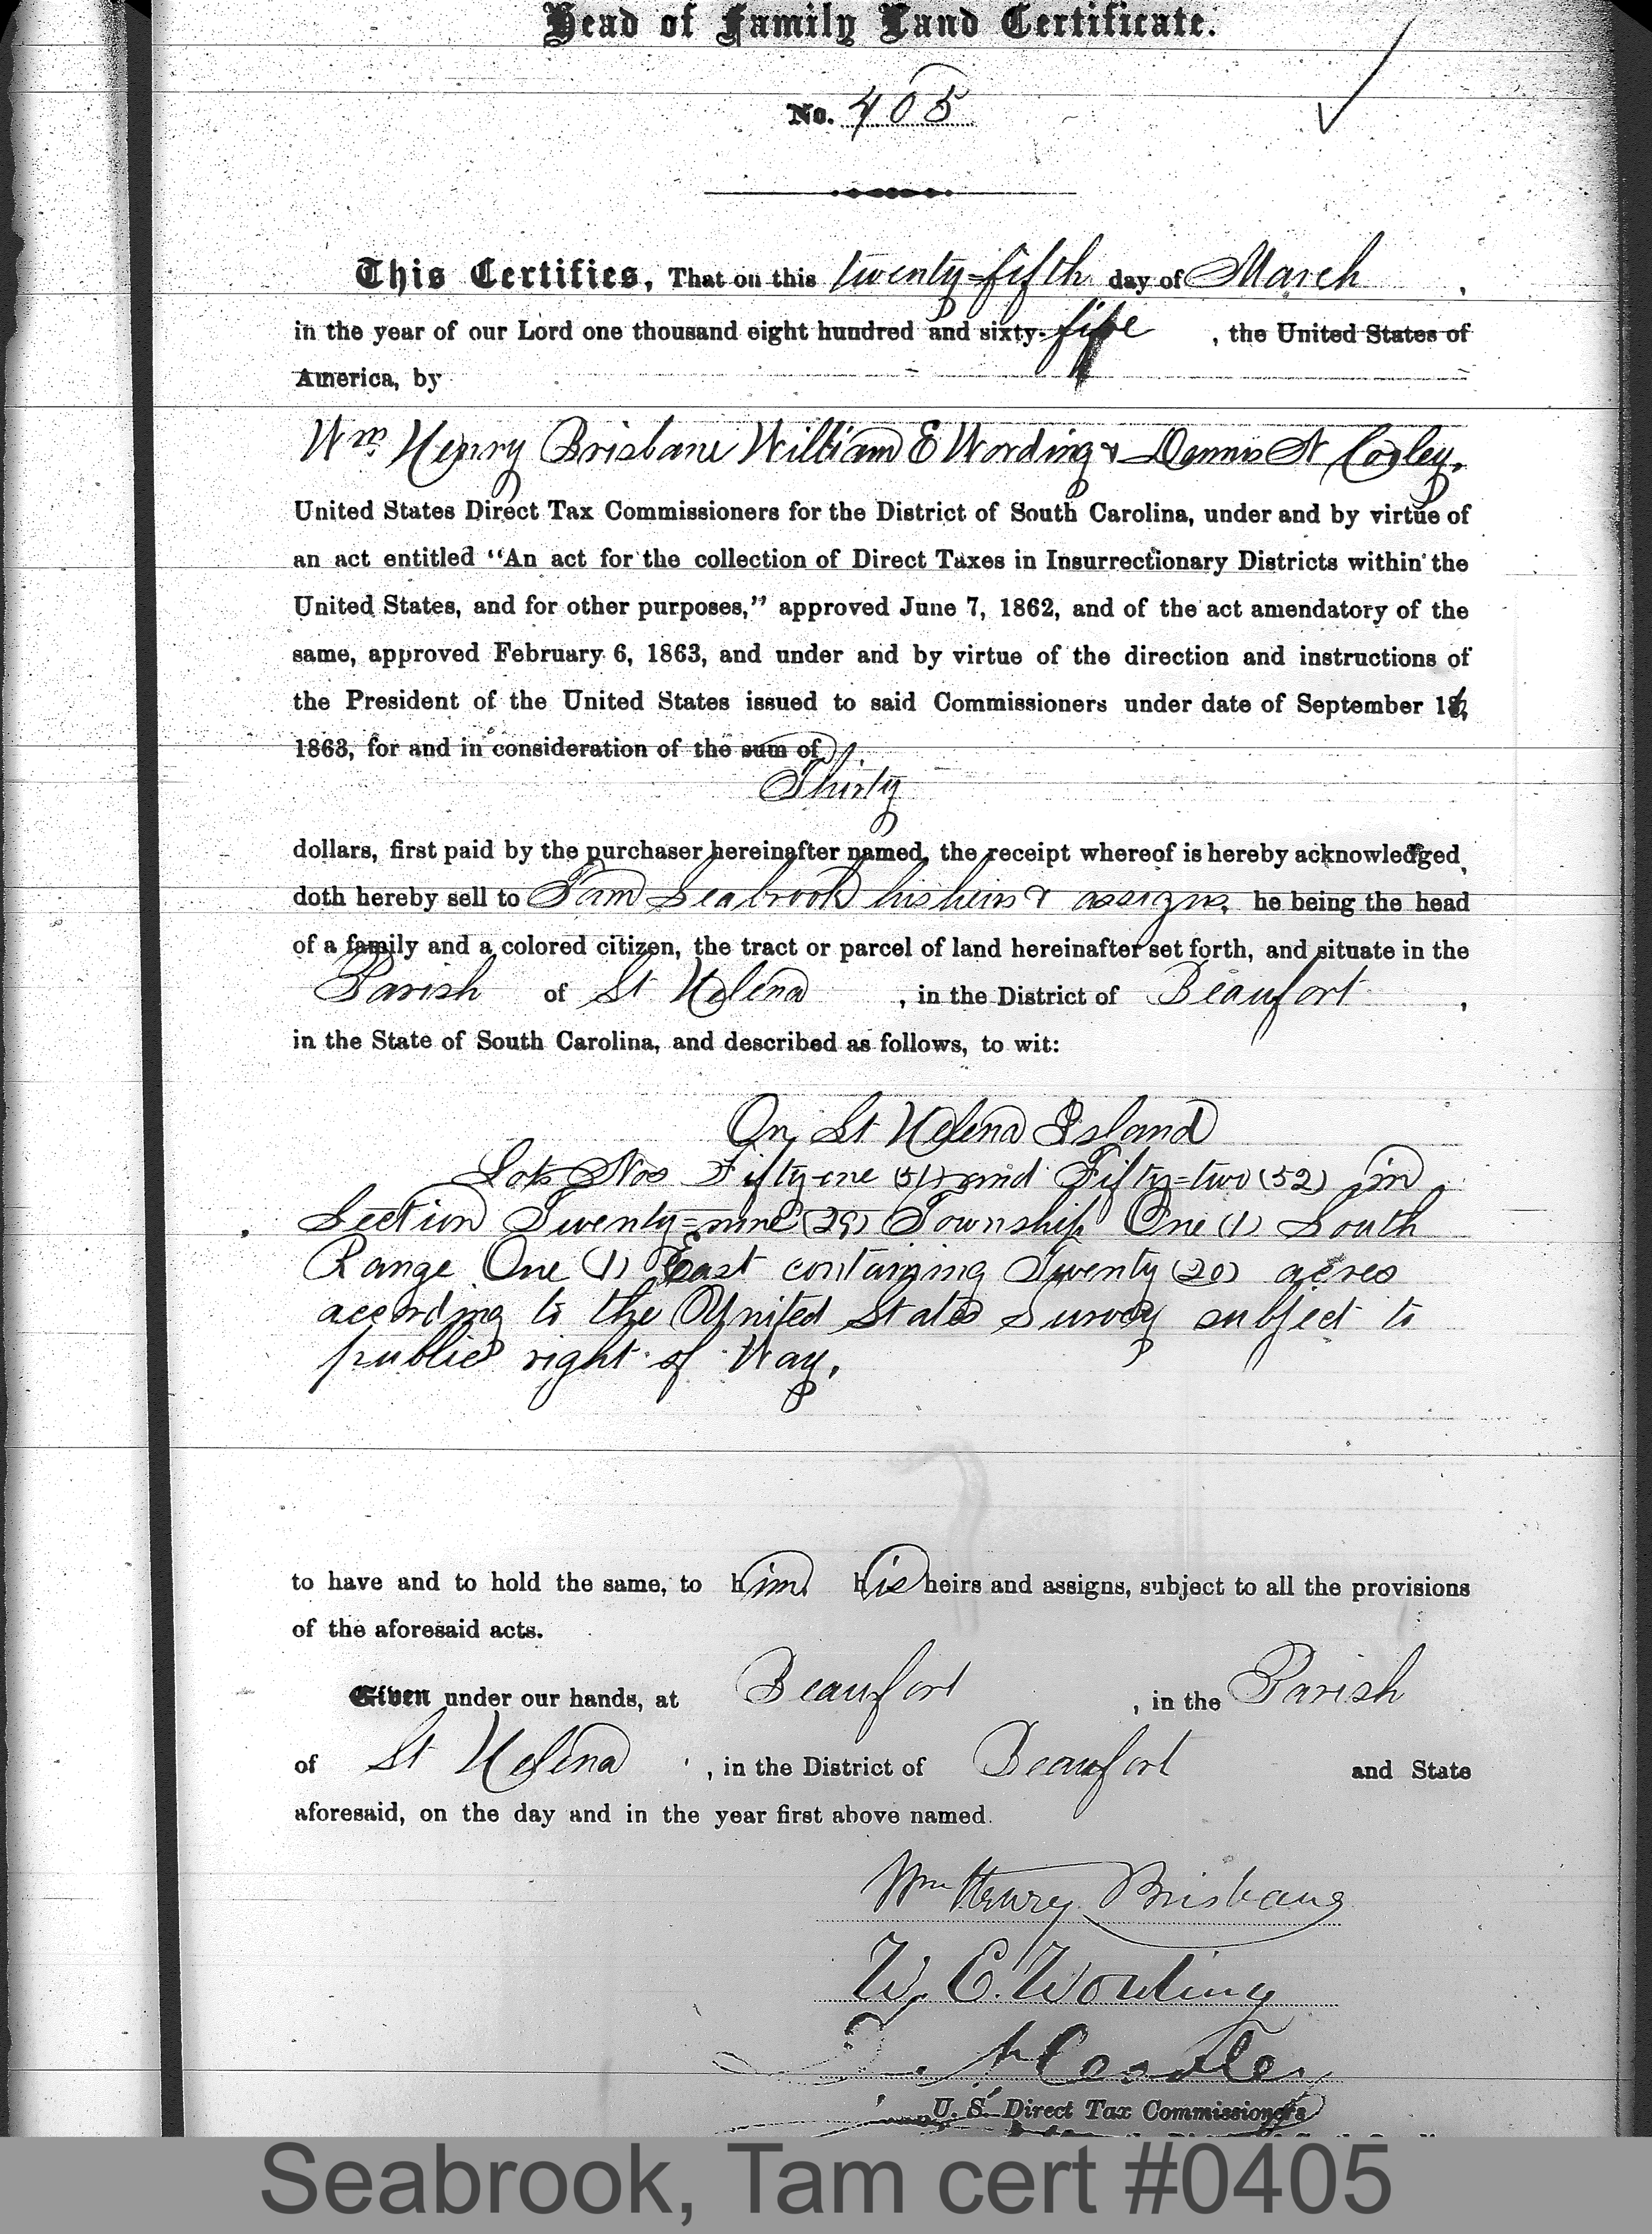 Head of Family Land Certificate.
No. 405
This Certifies, That on this twenty-fifth day of March,
in the year of our Lord one thousand eight hundred and sixty-five, the United States of
America, by
Wm. Henry Brisbane William E Wording & Dennis N Cooley,
United States Direct Tax Commissioners for the District of South Carolina, under and by virtue of
an act entitled "An act for the collection of Direct Taxes in Insurrectionary Districts within the
United States, and for other purposes," approved June 7, 1862, and of the act amendatory of the
same, approved February 6, 1863, and under and by virtue of the direction and instructions of
the President of the United States issued to said Commissioners under date of September
1863, for and in consideration of the sum of
Thirty
dollars, first paid by the purchaser hereinafter named, the receipt whereof is hereby acknowledged,
doth hereby sell to Tam Seabrook his heirs & assigns, he being the head
of a family and a colored citizen, the tract or parcel of land hereinafter set forth, and situate in the
Parish of St Helena, in the District of Beaufort,
in the State of South Carolina, and described as follows, to wit:
On St Helena Island
Lots Nos Fifty-one (51) and Fifty-two (52) in
Section Twenty-nine (29) Township One (1) South
Range One (1) East containing Twenty (20) acres
according to the United States Survey subject to
public right of Way.
to have and to hold the same, to him his heirs and assigns, subject to all the provisions
of the aforesaid acts.
Given under our hands, at Beaufort, in the Parish
of St Helena, in the District of Beaufort and State
aforesaid, on the day and in the year first above named.
Wm Henry Brisbane
W. E. Wording
D. N. Cooley
U. S. Direct Tax Commissioners
Seabrook, Tam cert #0405